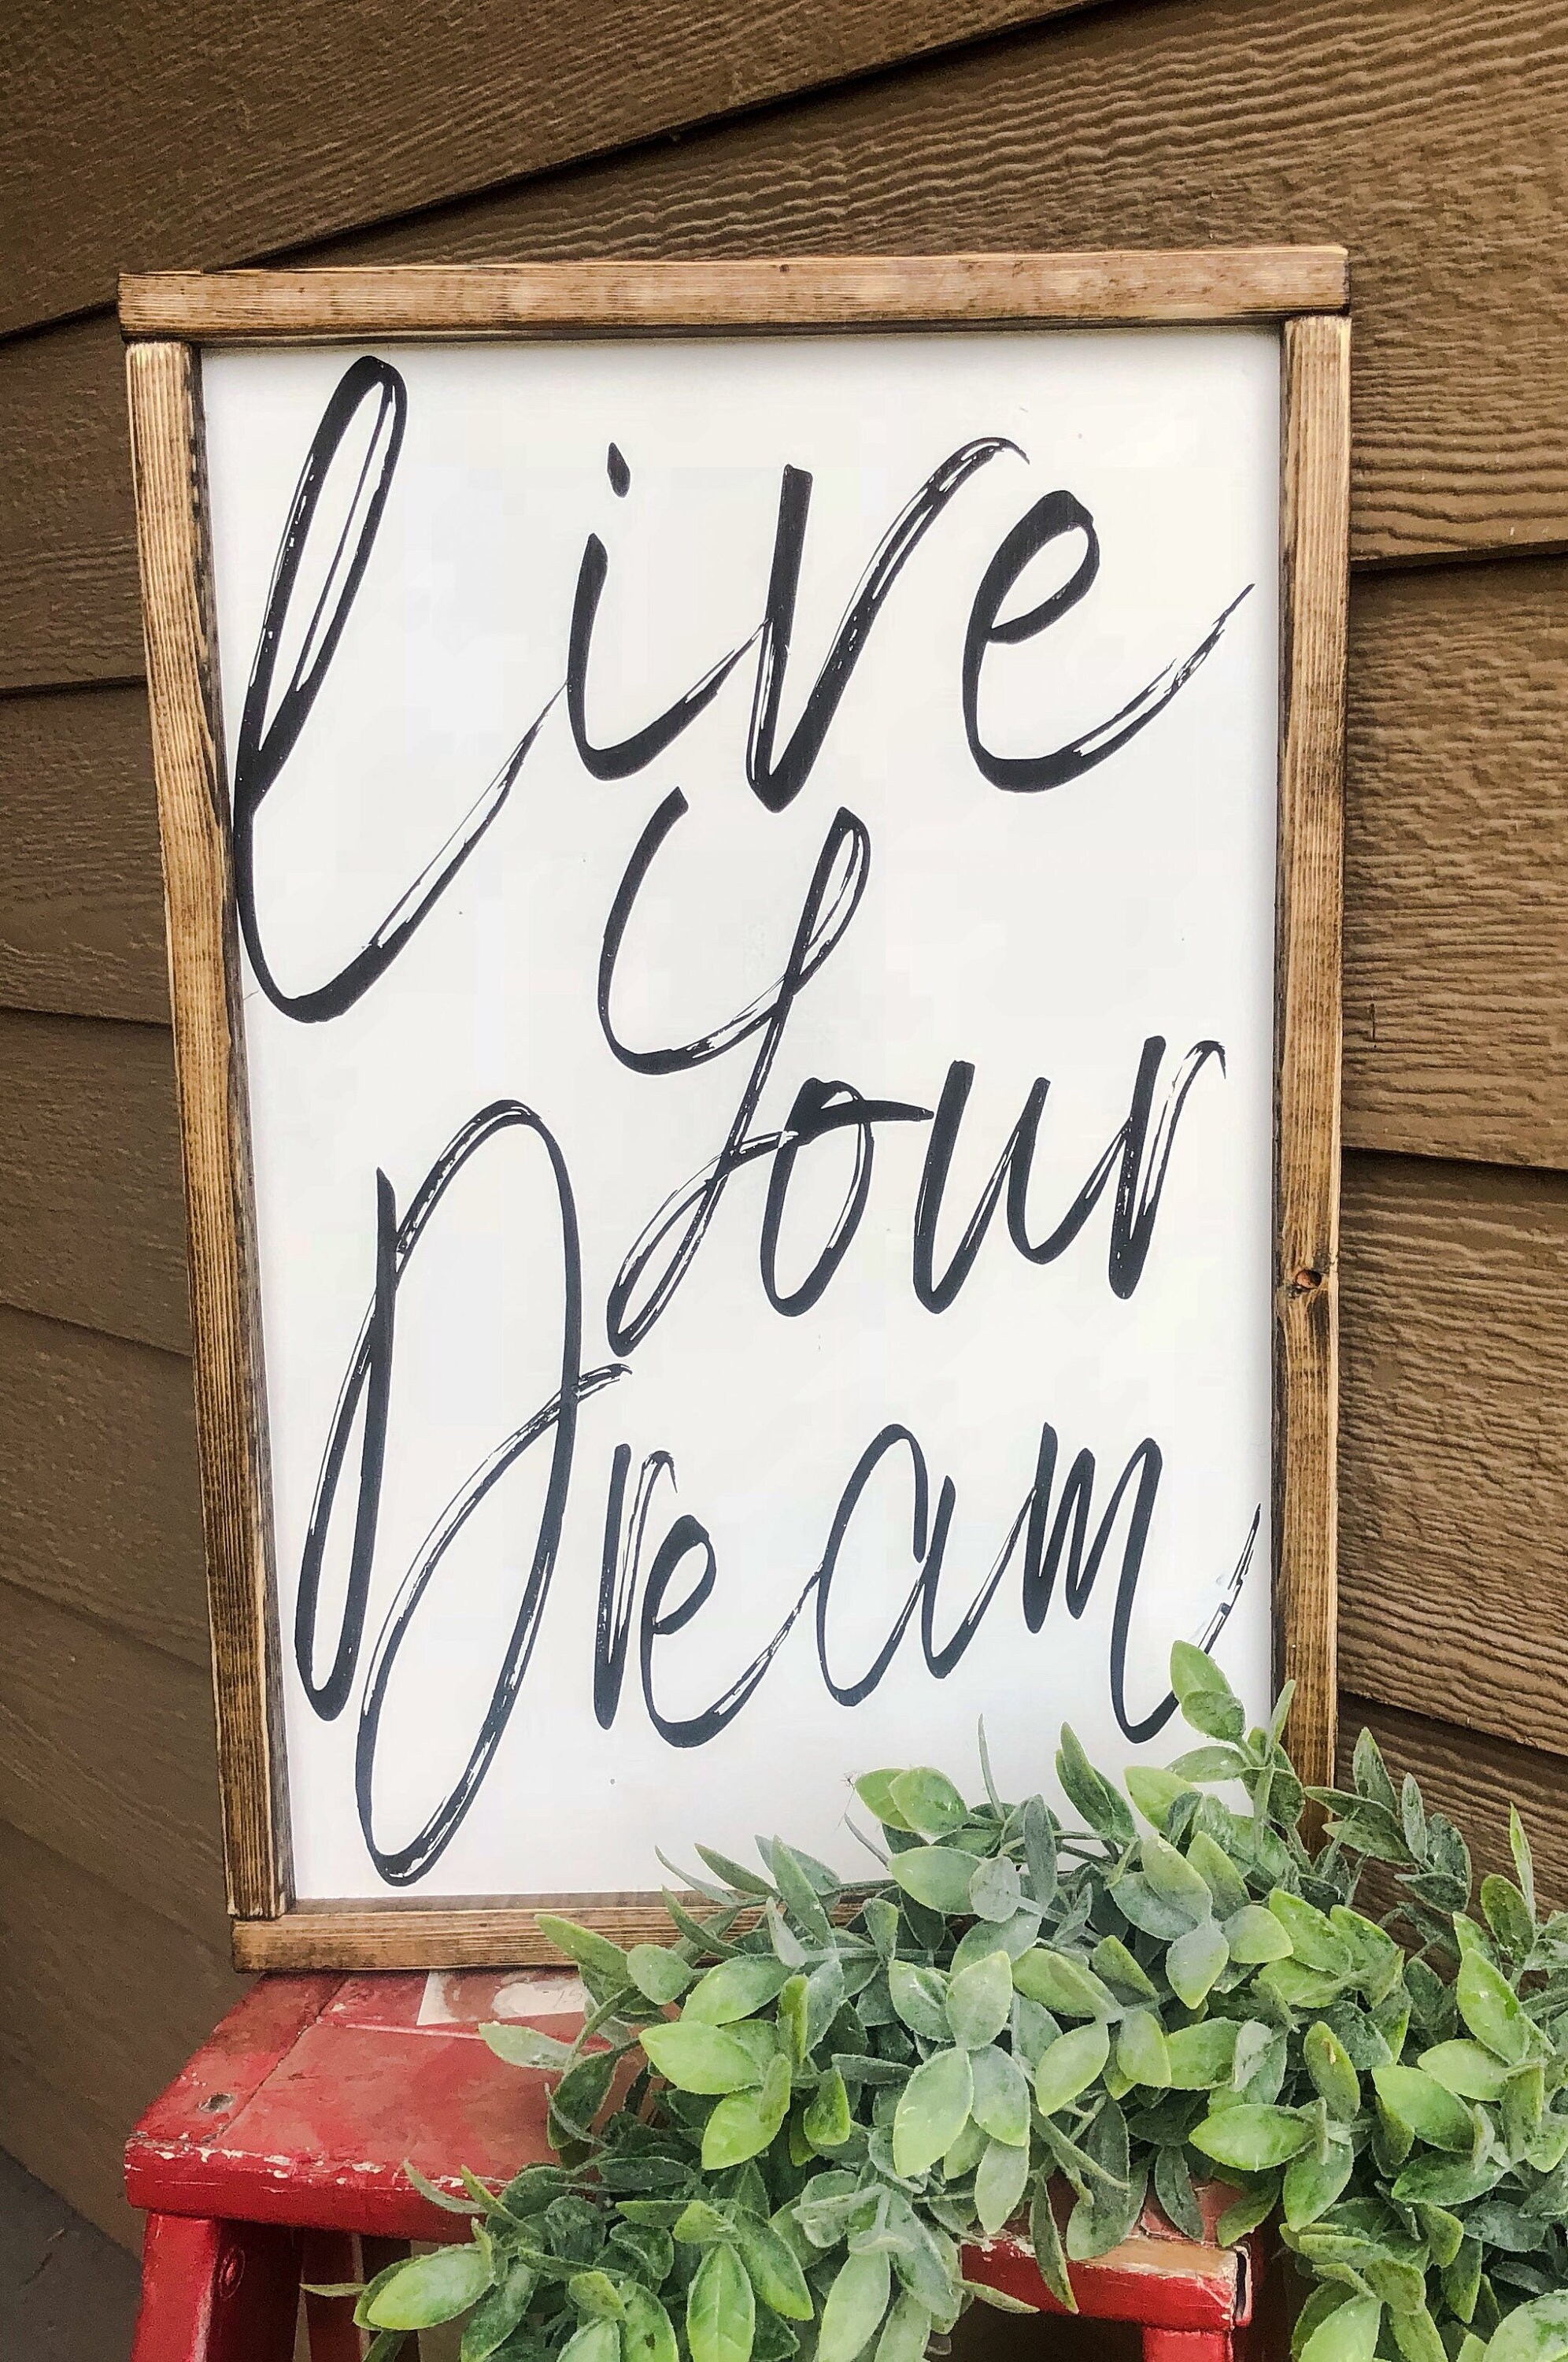 live
your
Dream